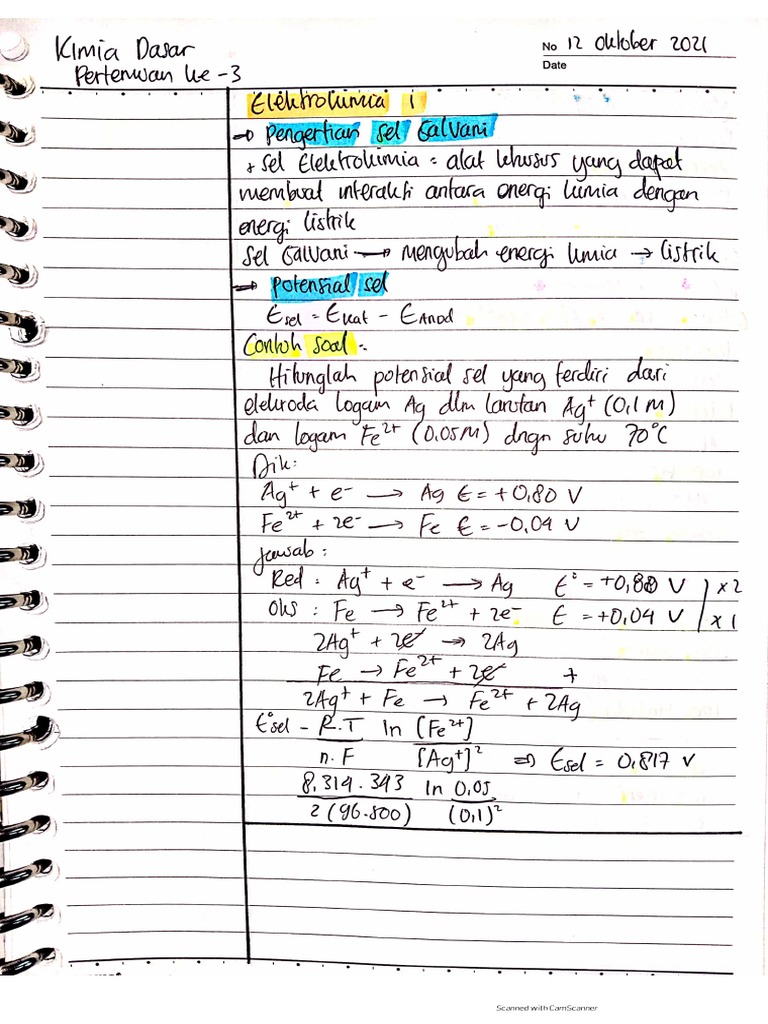 Kimia Dasar
Pertemuan ke -3
No 12 Oktober 2021
Date
Elektrokimia 1
→ Pengertian Sel Galvani
* Sel Elektrokimia = alat khusus yang dapat
membuat interaksi antara energi kimia dengan
energi listrik
Sel Galvani → mengubah energi kimia → listrik
→ Potensial sel
Esel = EKat - EAnod
Contoh soal :
Hitunglah potensial sel yang terdiri dari
elektroda logam Ag dlm larutan Ag⁺ (0,1 M)
dan logam Fe²⁺ (0,05M) dngn suhu 70°C
Dik:
Ag⁺ + e⁻ → Ag E = +0,80 V
Fe²⁺ + 2e⁻ → Fe E = -0,04 V
Jawab :
Red : Ag⁺ + e⁻ → Ag E° = +0,80 V | x 2
Oks : Fe → Fe²⁺ + 2e⁻ E = +0,04 V | x 1
2Ag⁺ + 2e⁻ → 2Ag
Fe → Fe²⁺ + 2e⁻ +
2Ag⁺ + Fe → Fe²⁺ + 2Ag
E°sel - R.T ln [Fe²⁺]
n.F [Ag⁺]² ⇒ Esel = 0,817 V
8,314 . 343 ln 0,05
2 (96.500) (0,1)²
Scanned with CamScanner